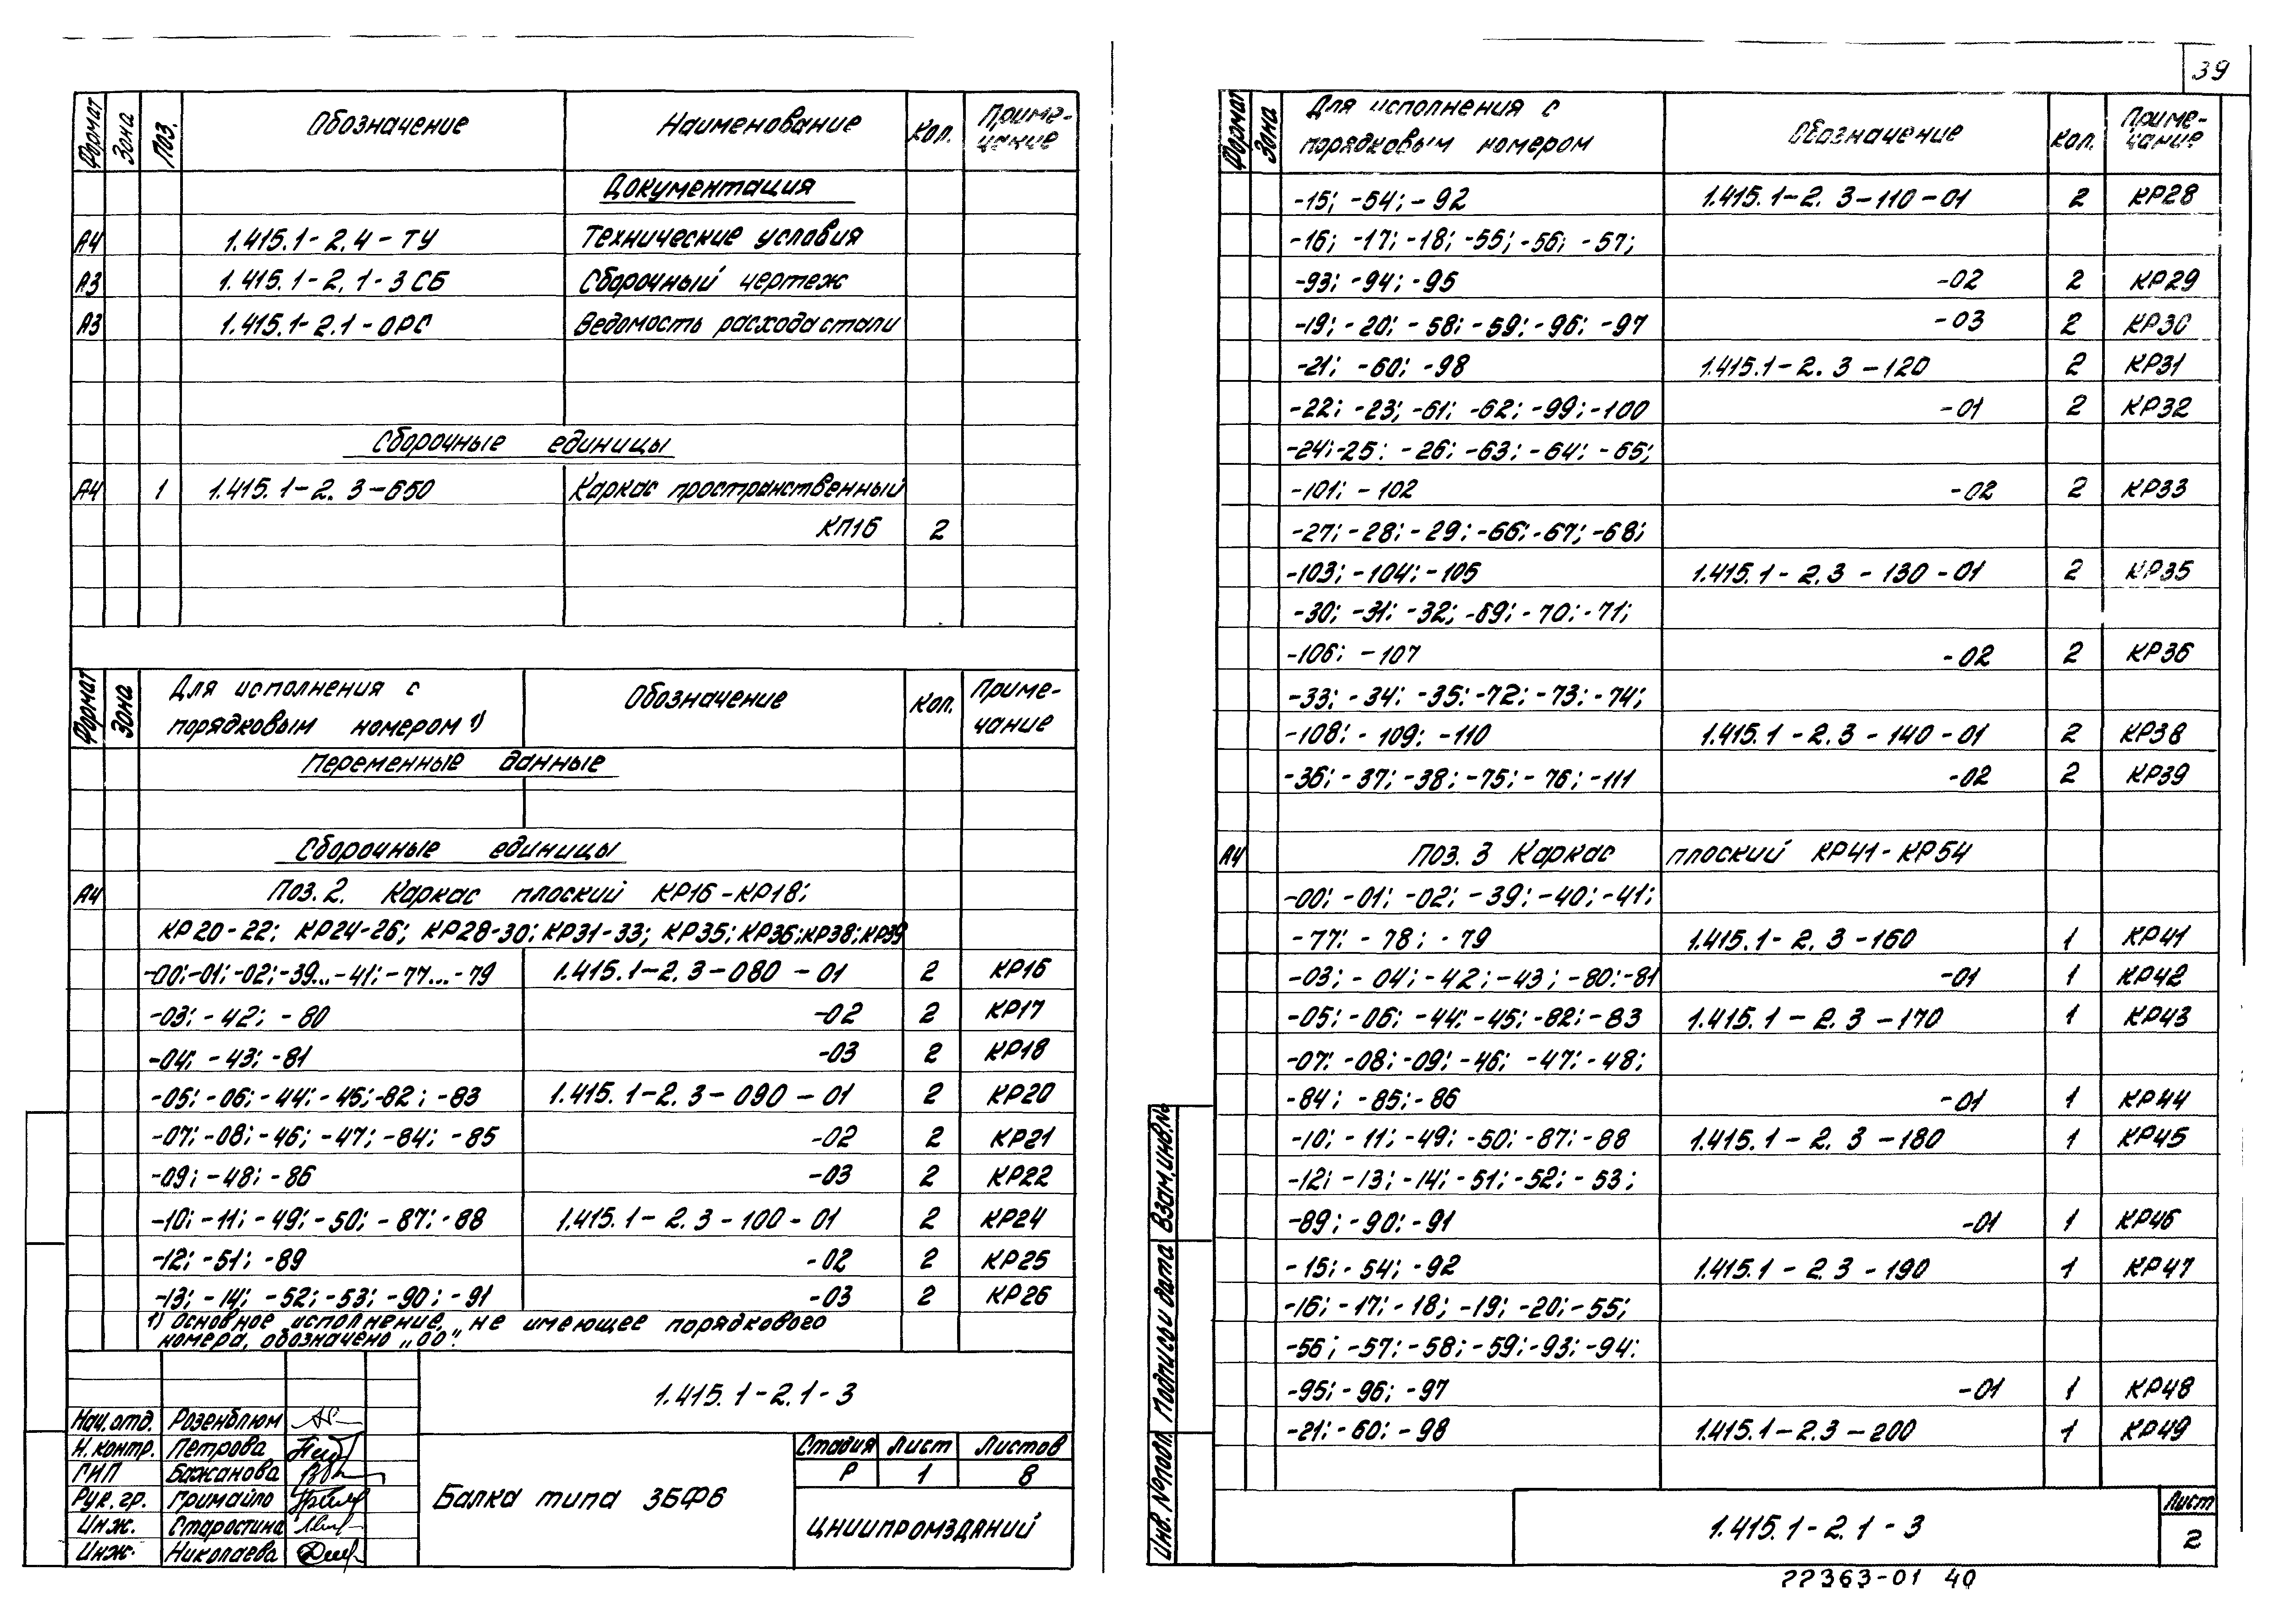 Формат Зона Поз. Обозначение Наименование Кол. Приме-
чание
Документация
А4 1.415.1-2.4-ТУ Технические условия
А3 1.415.1-2.1-3СБ Сборочный чертеж
А3 1.415.1-2.1-0РС Ведомость расхода стали
Сборочные единицы
А4 1 1.415.1-2.3-650 Каркас пространственный
КП16 2
Формат Зона Для исполнения с Обозначение Кол. Приме-
порядковым номером 1) чание
Переменные данные
Сборочные единицы
А4 Поз. 2. Каркас плоский КР16-КР18;
КР20-22; КР24-26; КР28-30; КР31-33; КР35; КР36; КР38; КР39
-00; -01; -02; -39...-41; -77...-79 1.415.1-2.3-080-01 2 КР16
-03; -42; -80 -02 2 КР17
-04; -43; -81 -03 2 КР18
-05; -06; -44; -45; -82; -83 1.415.1-2.3-090-01 2 КР20
-07; -08; -46; -47; -84; -85 -02 2 КР21
-09; -48; -86 -03 2 КР22
-10; -11; -49; -50; -87; -88 1.415.1-2.3-100-01 2 КР24
-12; -51; -89 -02 2 КР25
-13; -14; -52; -53; -90; -91 -03 2 КР26
1) Основное исполнение, не имеющее порядкового
номера, обозначено „00".
1.415.1-2.1-3
Нач.отд. Розенблюм
Н.контр. Петрова
ГИП Бажанова
Рук.гр. Гримайло
Инж. Старостина
Инж. Николаева
Балка типа 3БФ6
Стадия Лист Листов
Р 1 8
ЦНИИПРОМЗДАНИЙ
39
Формат Зона Для исполнения с Обозначение Кол. Приме-
порядковым номером чание
-15; -54; -92 1.415.1-2.3-110-01 2 КР28
-16; -17; -18; -55; -56; -57;
-93; -94; -95 -02 2 КР29
-19; -20; -58; -59; -96; -97 -03 2 КР30
-21; -60; -98 1.415.1-2.3-120 2 КР31
-22; -23; -61; -62; -99; -100 -01 2 КР32
-24; -25; -26; -63; -64; -65;
-101; -102 -02 2 КР33
-27; -28; -29; -66; -67; -68;
-103; -104; -105 1.415.1-2.3-130-01 2 КР35
-30; -31; -32; -69; -70; -71;
-106; -107 -02 2 КР36
-33; -34; -35; -72; -73; -74;
-108; -109; -110 1.415.1-2.3-140-01 2 КР38
-36; -37; -38; -75; -76; -111 -02 2 КР39
А4 Поз. 3 Каркас плоский КР41-КР54
-00; -01; -02; -39; -40; -41;
-77; -78; -79 1.415.1-2.3-160 1 КР41
-03; -04; -42; -43; -80; -81 -01 1 КР42
-05; -06; -44; -45; -82; -83 1.415.1-2.3-170 1 КР43
-07; -08; -09; -46; -47; -48;
-84; -85; -86 -01 1 КР44
-10; -11; -49; -50; -87; -88 1.415.1-2.3-180 1 КР45
-12; -13; -14; -51; -52; -53;
-89; -90; -91 -01 1 КР46
-15; -54; -92 1.415.1-2.3-190 1 КР47
-16; -17; -18; -19; -20; -55;
-56; -57; -58; -59; -93; -94;
-95; -96; -97 -01 1 КР48
-21; -60; -98 1.415.1-2.3-200 1 КР49
Инв. № подл. Подпись и дата Взам.инв.№
1.415.1-2.1-3
Лист
2
22363-01 40